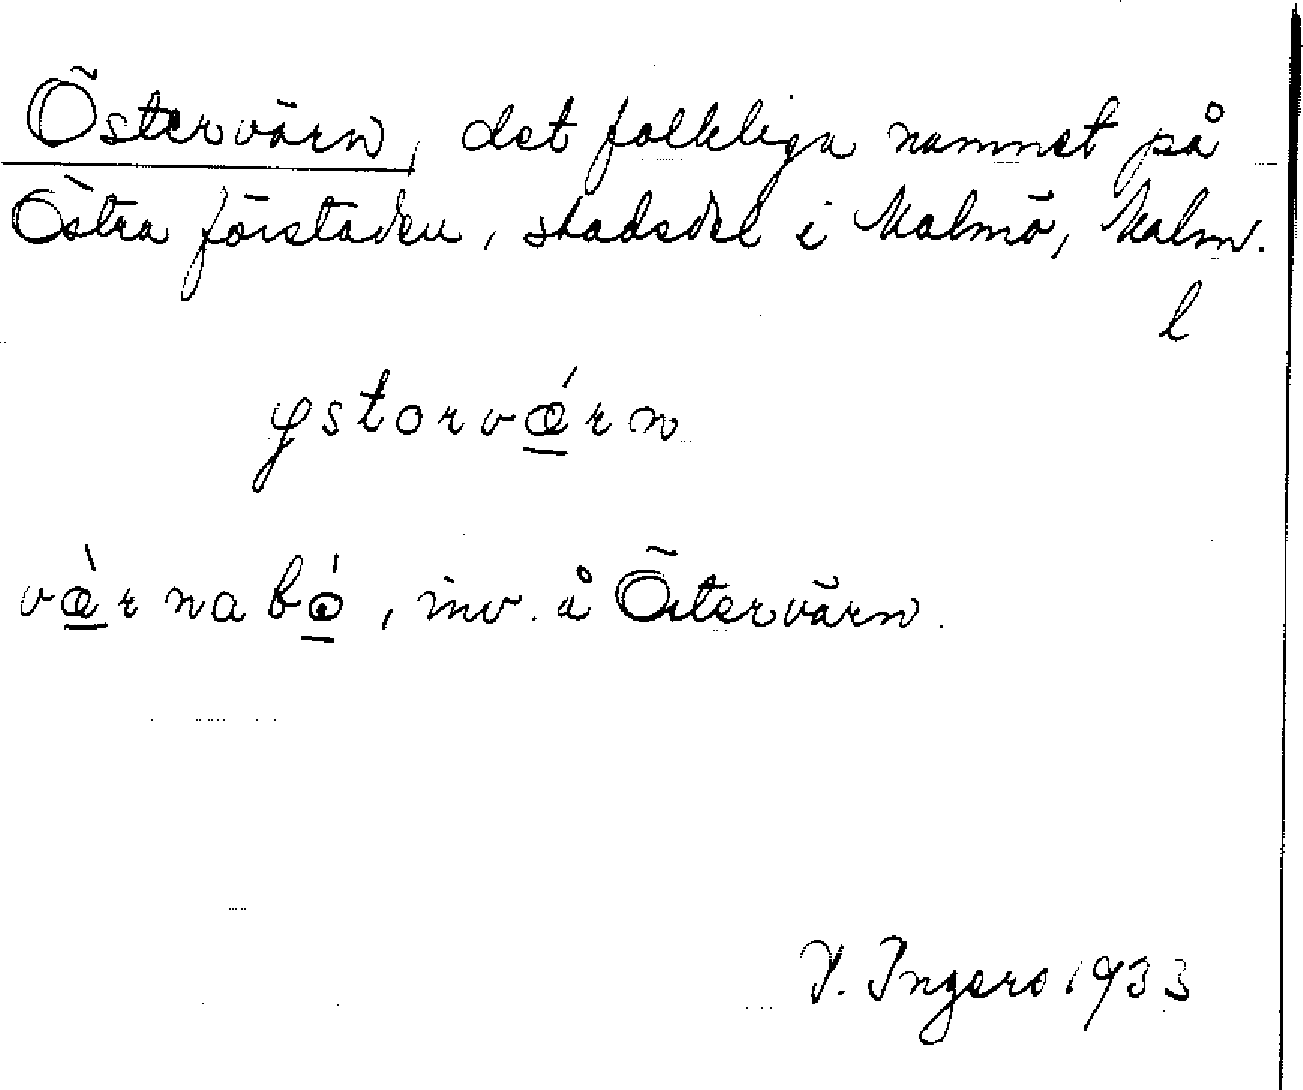 Östervärn, det folkliga namnet på
Östra förstaden, stadsdel i Malmö, Malm.
l
ystorvǽrn
vǽrnabó, inv. å Östervärn.
V. Ingers 1933